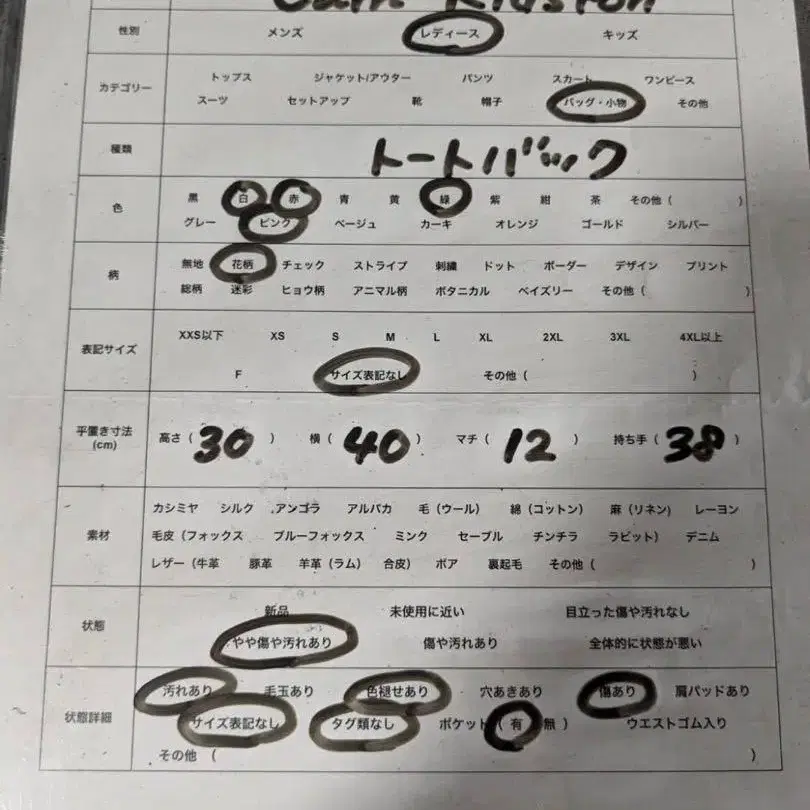 性別 メンズ レディース キッズ
トップス ジャケット/アウター パンツ スカート ワンピース
カテゴリー
スーツ セットアップ 靴 帽子 バッグ・小物 その他
種類 トートバック
黒 白 赤 青 黄 緑 紫 紺 茶 その他 ( )
色
グレー ピンク ベージュ カーキ オレンジ ゴールド シルバー
無地 花柄 チェック ストライプ 刺繍 ドット ボーダー デザイン プリント
柄
総柄 迷彩 ヒョウ柄 アニマル柄 ボタニカル ペイズリー その他 ( )
XXS以下 XS S M L XL 2XL 3XL 4XL以上
表記サイズ
F サイズ表記なし その他 ( )
平置き寸法
(cm)
高さ ( 30 ) 横 ( 40 ) マチ ( 12 ) 持ち手 ( 38 )
カシミヤ シルク アンゴラ アルパカ 毛 (ウール) 綿 (コットン) 麻 (リネン) レーヨン
素材 毛皮 (フォックス ブルーフォックス ミンク セーブル チンチラ ラビット) デニム
レザー (牛革 豚革 羊革 (ラム) 合皮) ボア 裏起毛 その他 ( )
新品 未使用に近い 目立った傷や汚れなし
状態
やや傷や汚れあり 傷や汚れあり 全体的に状態が悪い
汚れあり 毛玉あり 色褪せあり 穴あきあり 傷あり 肩パッドあり
状態詳細 サイズ表記なし タグ類なし ポケット ( 有 無 ) ウエストゴム入り
その他 ( )